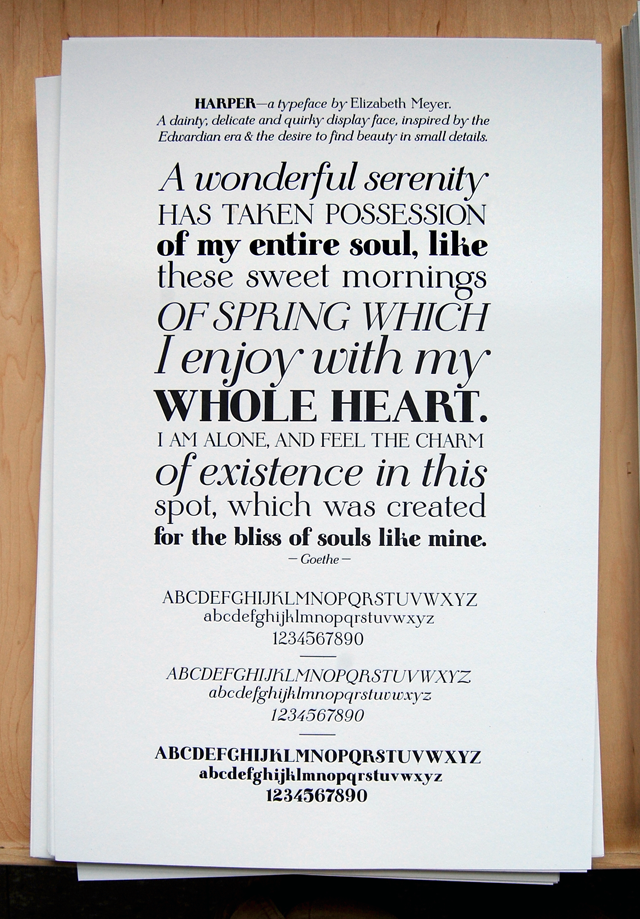 HARPER—a typeface by Elizabeth Meyer.
A dainty, delicate and quirky display face, inspired by the
Edwardian era & the desire to find beauty in small details.
A wonderful serenity
HAS TAKEN POSSESSION
of my entire soul, like
these sweet mornings
OF SPRING WHICH
I enjoy with my
WHOLE HEART.
I AM ALONE, AND FEEL THE CHARM
of existence in this
spot, which was created
for the bliss of souls like mine.
— Goethe —
ABCDEFGHIJKLMNOPQRSTUVWXYZ
abcdefghijklmnopqrstuvwxyz
1234567890
ABCDEFGHIJKLMNOPQRSTUVWXYZ
abcdefghijklmnopqrstuvwxyz
1234567890
ABCDEFGHIJKLMNOPQRSTUVWXYZ
abcdefghijklmnopqrstuvwxyz
1234567890